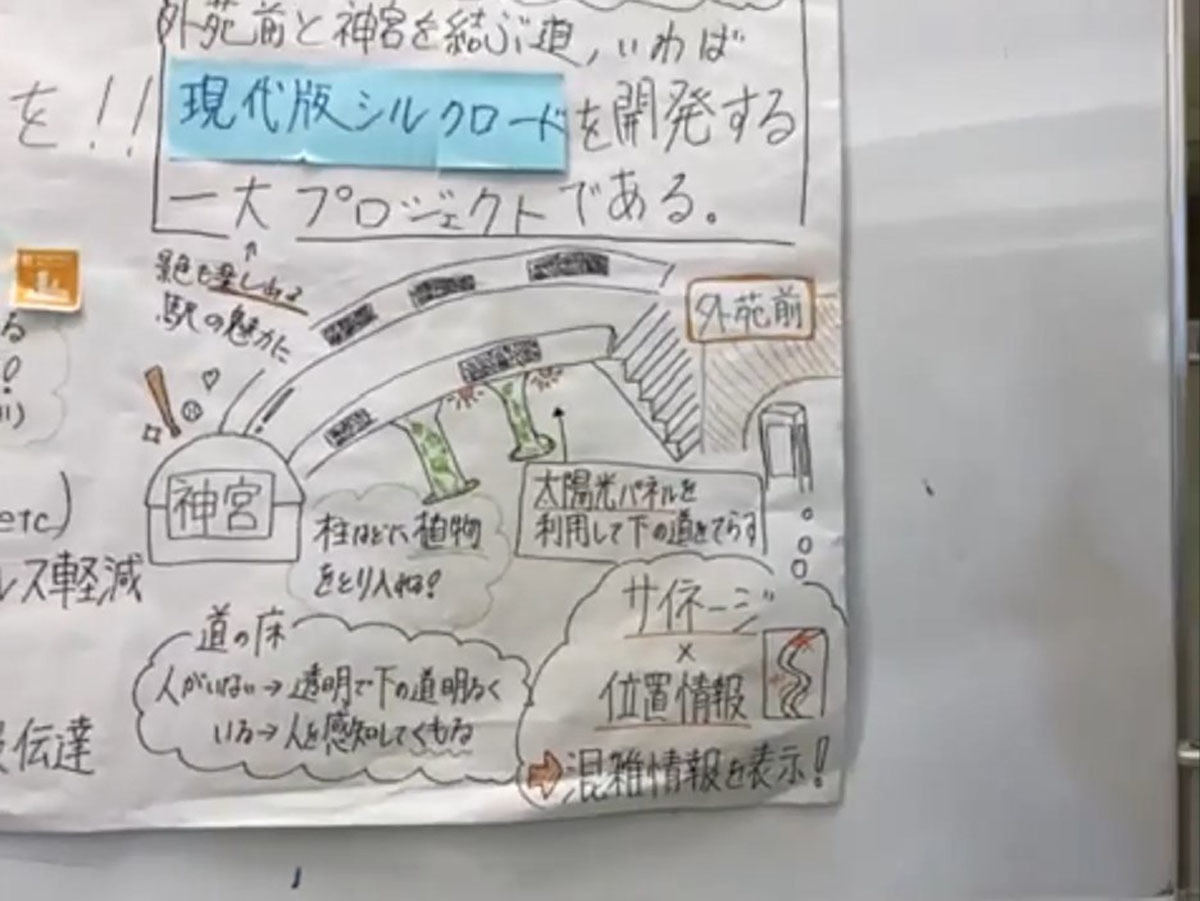 外苑前と神宮を結ぶ道,いわば
を!!
現代版シルクロードを開発する
一大プロジェクトである。
景色も楽しめる
駅の魅力に
る
!
外苑前
神宮
etc)
レス軽減
伝達
柱などに植物
をとり入れる!
太陽光パネルを
利用して下の道をてらす
道の床
人がいない→透明で下の道明るく
いる→人を感知してくもる
サイネージ
×
位置情報
混雑情報を表示!